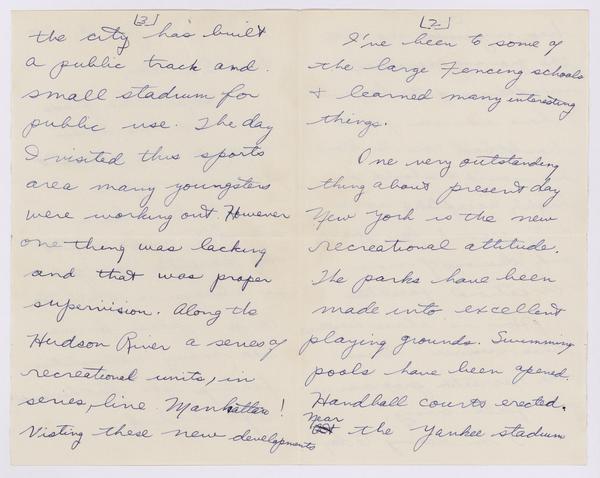 [2]
I've been to some of
the large Fencing schools
+ learned many interesting
things.
One very outstanding
thing about present day
New York is the new
recreational attitude.
The parks have been
made into excellent
playing grounds. Swimming
pools have been opened.
Handball courts erected.
Near the Yankee stadium
[3]
the city has built
a public track and
small stadium for
public use. The day
I visited this sports
area many youngsters
were working out. However
one thing was lacking
and that was proper
supervision. Along the
Hudson River a series of
recreational units, in
series, line Manhattan!
Visting these new developments